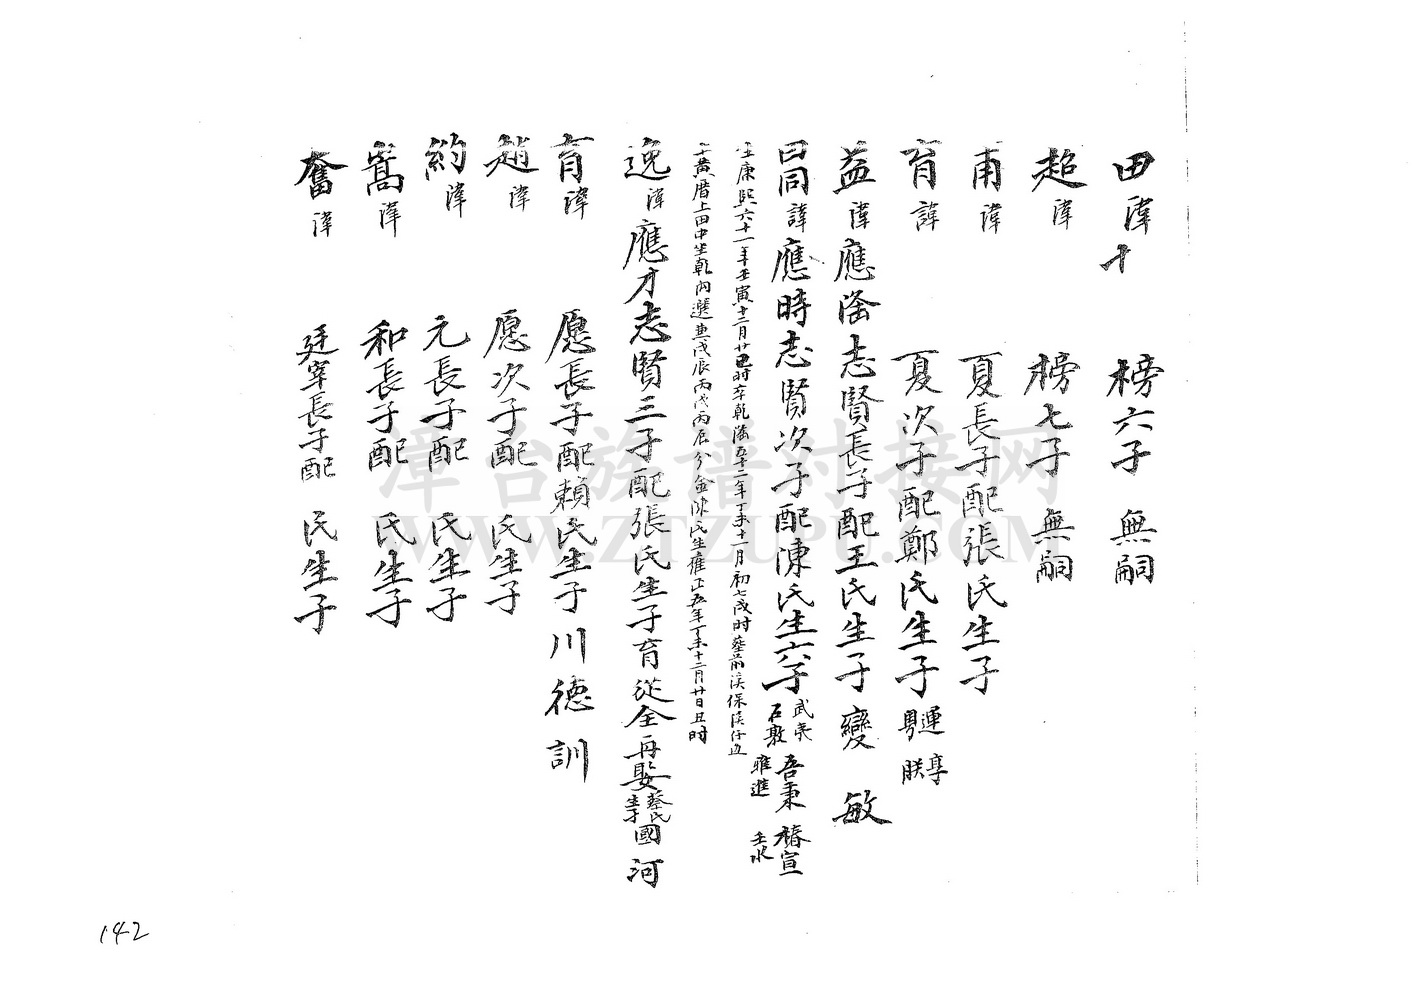 田 諱十 榜六子 無嗣
超 諱 榜七子 無嗣
甫 諱 夏長子配張氏生子
育 諱 夏次子配鄭氏生子 運 享 粤 朕
益 諱 應 志賢長子配王氏生子 變 敏
諱 應時志賢次子配陳氏生六子 武夷 石敦 吾秉 雅進 椿宣 壬水
生康熙六十一年壬寅十二月廿 時卒乾隆五十二年丁未十一月初七戌時葬 溪保溪仔边
黄厝上田中坐乾 戊辰丙戌丙辰分金陳氏生雍正五年丁未十二月廿日丑時
逸 諱 應才志賢三子配張氏生子育從全再娶蔡氏生子國 河
育 諱 愿長子配賴氏生子川 德 訓
趙 諱 愿次子配 氏生子
約 諱 元長子配 氏生子
嵩 諱 和長子配 氏生子
奮 諱 廷宰長子配 氏生子
142
漳台族谱对接网
WWW.ZTZUPU.COM